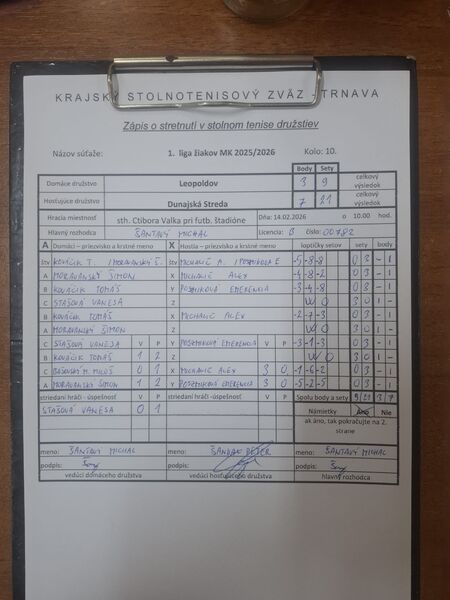 KRAJSKÝ STOLNOTENISOVÝ ZVÄZ - TRNAVA
Zápis o stretnutí v stolnom tenise družstiev
Názov súťaže: 1. liga žiakov MK 2025/2026 Kolo: 10.
Body Sety
Domáce družstvo Leopoldov 3 9 celkový výsledok
Hosťujúce družstvo Dunajská Streda 7 21 celkový výsledok
Hracia miestnosť sth. Ctibora Valka pri futb. štadióne Dňa: 14.02.2026 o 10.00 hod.
Hlavný rozhodca ŠANTAVÝ MICHAL Licencia: B číslo: 00782
A Domáci - priezvisko a krstné meno X Hostia - priezvisko a krstné meno loptičky setov sety body
štv KOVÁČIK T. /MORAVANSKÝ Š. štv MICHALIČ A. -5 -8 -8 0 3 - 1
A MORAVANSKÝ ŠIMON X MICHALIČ ALEX -4 -8 -2 0 3 - 1
B KOVÁČIK TOMÁŠ Y EMERENCIA -3 -4 -8 0 3 - 1
C STAŠOVÁ VANESA Z WO 3 0 1 -
B KOVÁČIK TOMÁŠ X MICHALIČ ALEX -2 -7 -3 0 3 - 1
A MORAVANSKÝ ŠIMON Z WO 3 0 1 -
C STAŠOVÁ VANESA V P Y EMERENCIA V P -3 -1 -3 0 3 - 1
B KOVÁČIK TOMÁŠ 1 2 Z WO 3 0 1 -
C MILOŠ 0 1 X MICHALIČ ALEX 3 0 -1 -6 -2 0 3 - 1
A MORAVANSKÝ ŠIMON 1 2 Y EMERENCIA 3 0 -5 -2 -5 0 3 - 1
striedaní hráči - úspešnosť V P striedaní hráči - úspešnosť V P Spolu body a sety 9 21 3 7
STAŠOVÁ VANESA 0 1 Námietky Áno Nie
ak áno, tak pokračujte na 2. strane
meno: ŠANTAVÝ MICHAL meno: PETER meno: ŠANTAVÝ MICHAL
podpis: podpis: podpis:
vedúci domáceho družstva vedúci hosťujúceho družstva hlavný rozhodca